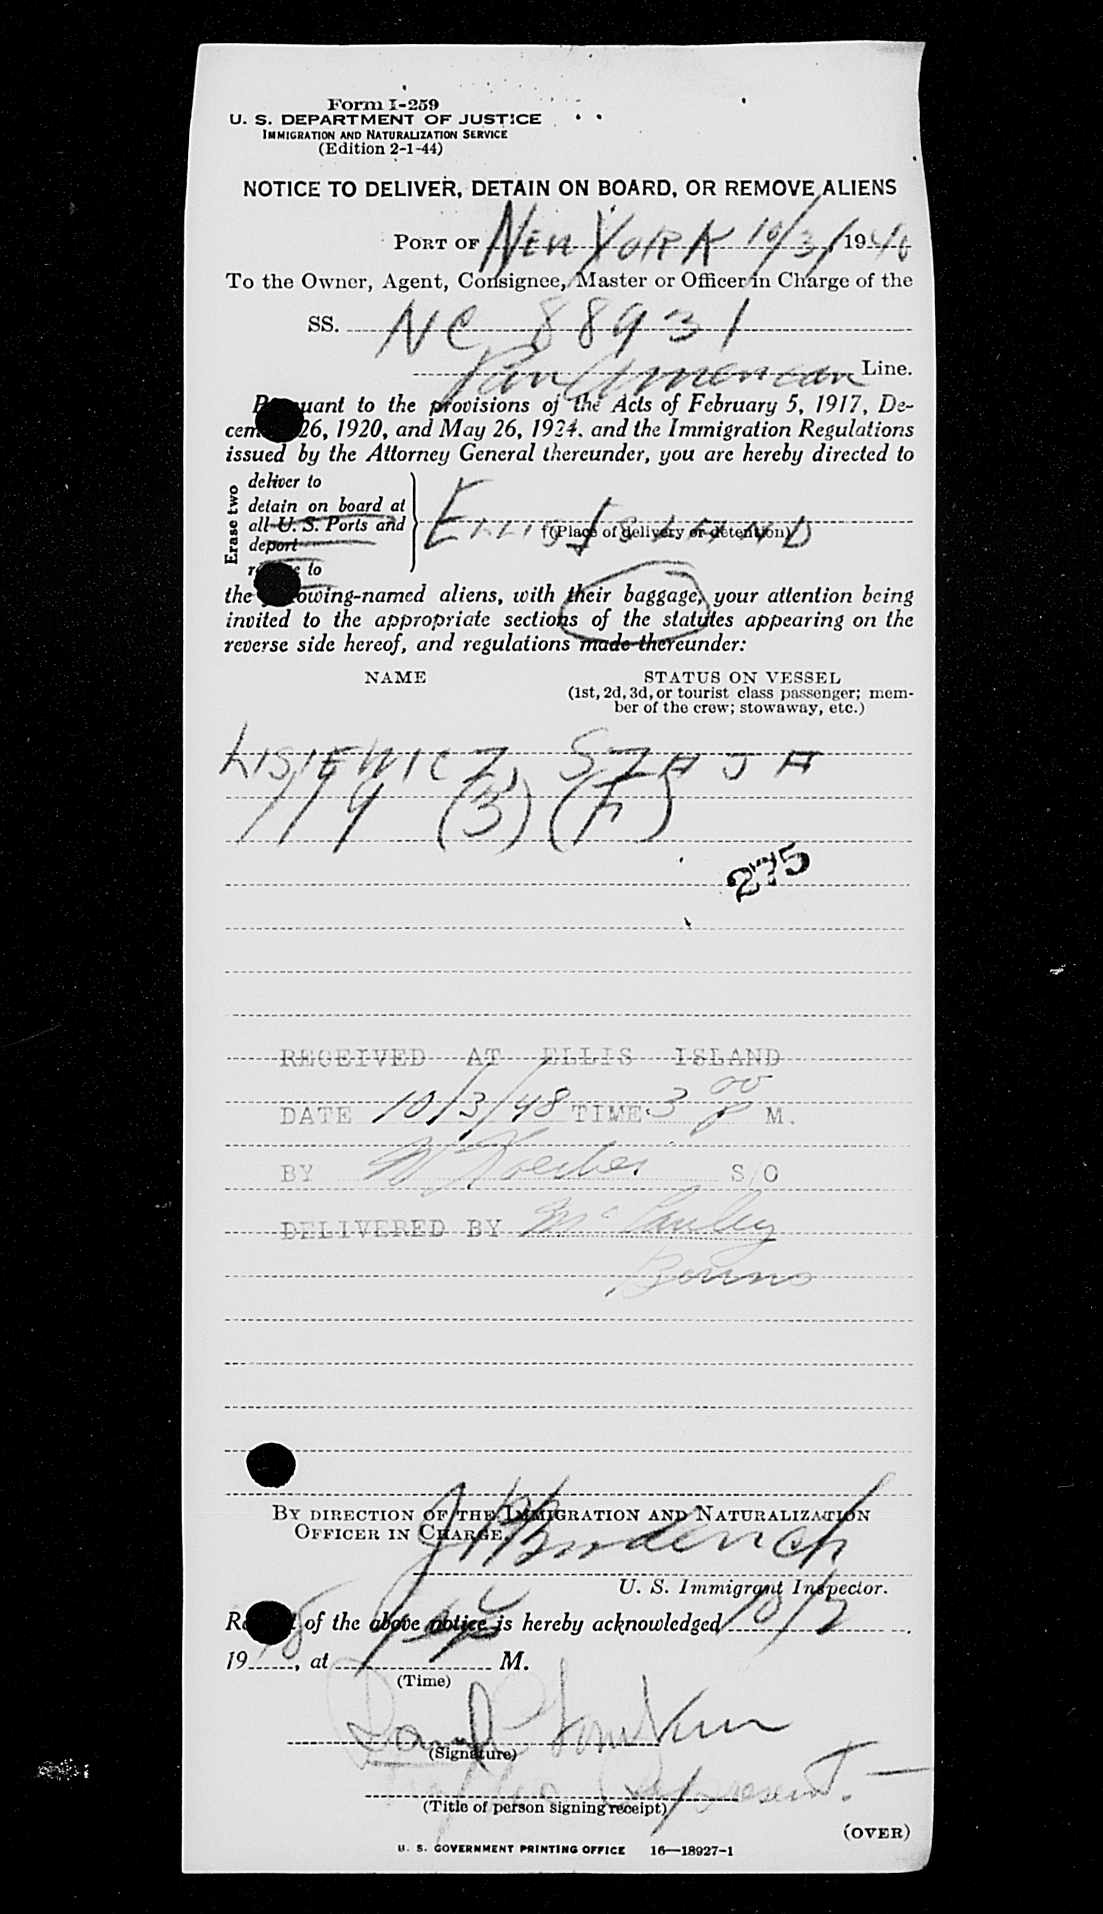 Form I-259
U. S. DEPARTMENT OF JUSTICE
IMMIGRATION AND NATURALIZATION SERVICE
(Edition 2-1-44)
NOTICE TO DELIVER, DETAIN ON BOARD, OR REMOVE ALIENS
PORT OF NEW YORK 10/3/ 1948
To the Owner, Agent, Consignee, Master or Officer in Charge of the
SS. NC 88931
Pan American Line.
Pursuant to the provisions of the Acts of February 5, 1917, De-
cember 26, 1920, and May 26, 1924, and the Immigration Regulations
issued by the Attorney General thereunder, you are hereby directed to
Erase two
deliver to
detain on board at
all U. S. Ports and
deport
remove to
ELLIS ISLAND
†(Place of delivery or detention)
the following-named aliens, with their baggage, your attention being
invited to the appropriate sections of the statutes appearing on the
reverse side hereof, and regulations made thereunder:
NAME STATUS ON VESSEL
(1st, 2d, 3d, or tourist class passenger; mem-
ber of the crew; stowaway, etc.)
LISIEWICZ, SZAJA
(3)
275
RECEIVED AT ELLIS ISLAND
DATE 10/3/48 TIME 3 00 P M.
BY S/O
DELIVERED BY McCauley
BY DIRECTION OF THE IMMIGRATION AND NATURALIZATION
OFFICER IN CHARGE.
U. S. Immigrant Inspector.
Receipt of the above notice is hereby acknowledged 10/3
1948, at M.
(Time)
(Signature)
Represent.
(Title of person signing receipt)
(OVER)
U. S. GOVERNMENT PRINTING OFFICE 16—18927-1